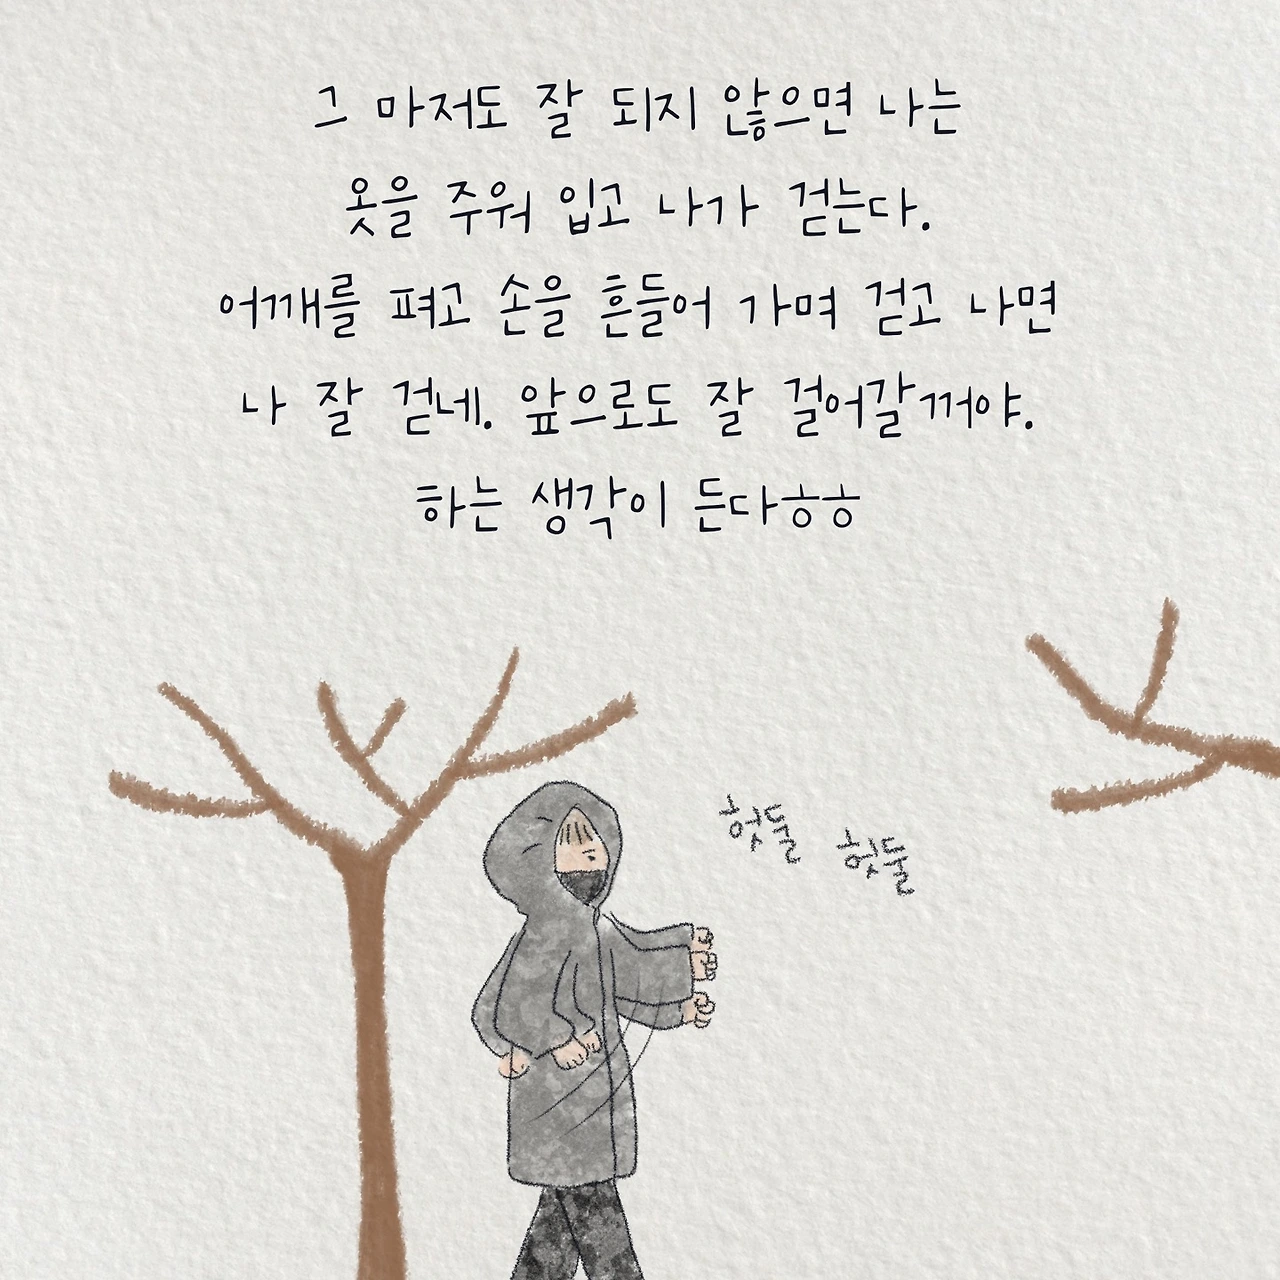 그 마저도 잘 되지 않으면 나는
옷을 주워 입고 나가 걷는다.
어깨를 펴고 손을 흔들어 가며 걷고 나면
나 잘 걷네. 앞으로도 잘 걸어갈꺼야.
하는 생각이 든다ㅎㅎ
헛둘 헛둘